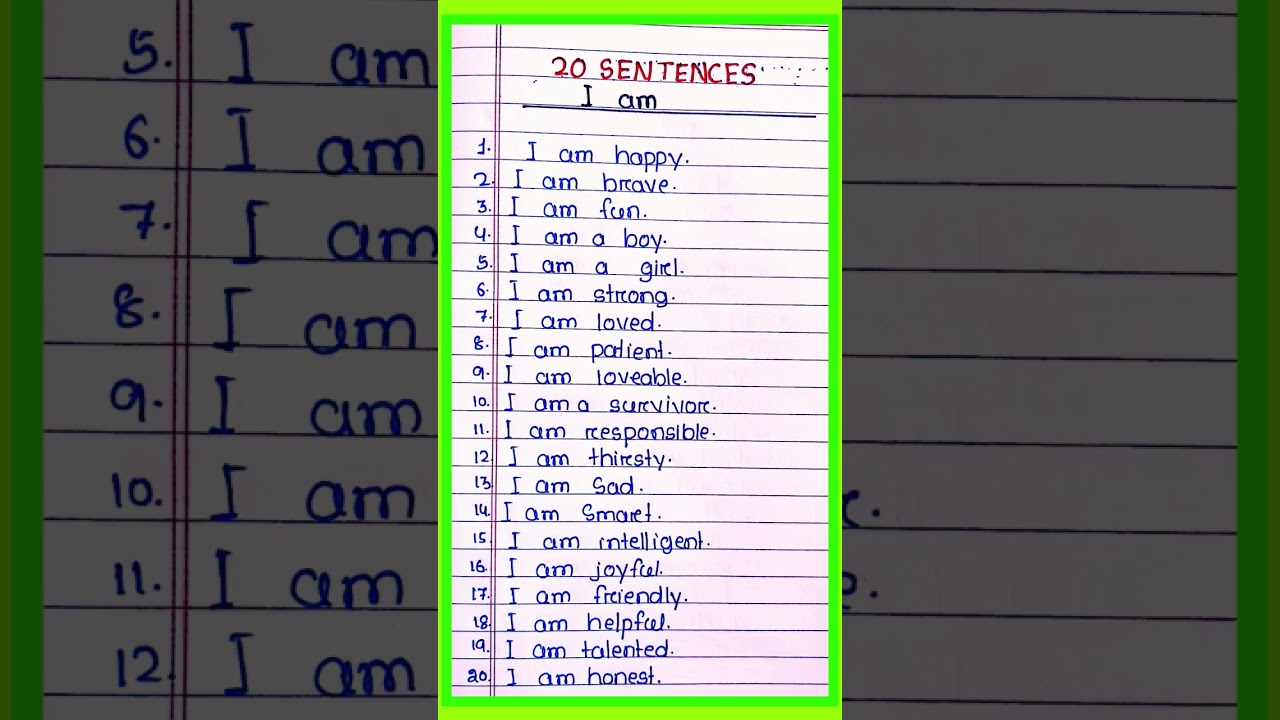 5. I am
6. I am
7. I am
8. I am
9. I am
10. I am
11. I am
12. I am
20 SENTENCES
I am
1. I am happy.
2. I am brave.
3. I am fun.
4. I am a boy.
5. I am a girl.
6. I am strong.
7. I am loved.
8. I am patient.
9. I am loveable.
10. I am a survivor.
11. I am responsible.
12. I am thirsty.
13. I am Sad.
14. I am Smart.
15. I am intelligent.
16. I am joyful.
17. I am friendly.
18. I am helpful.
19. I am talented.
20. I am honest.